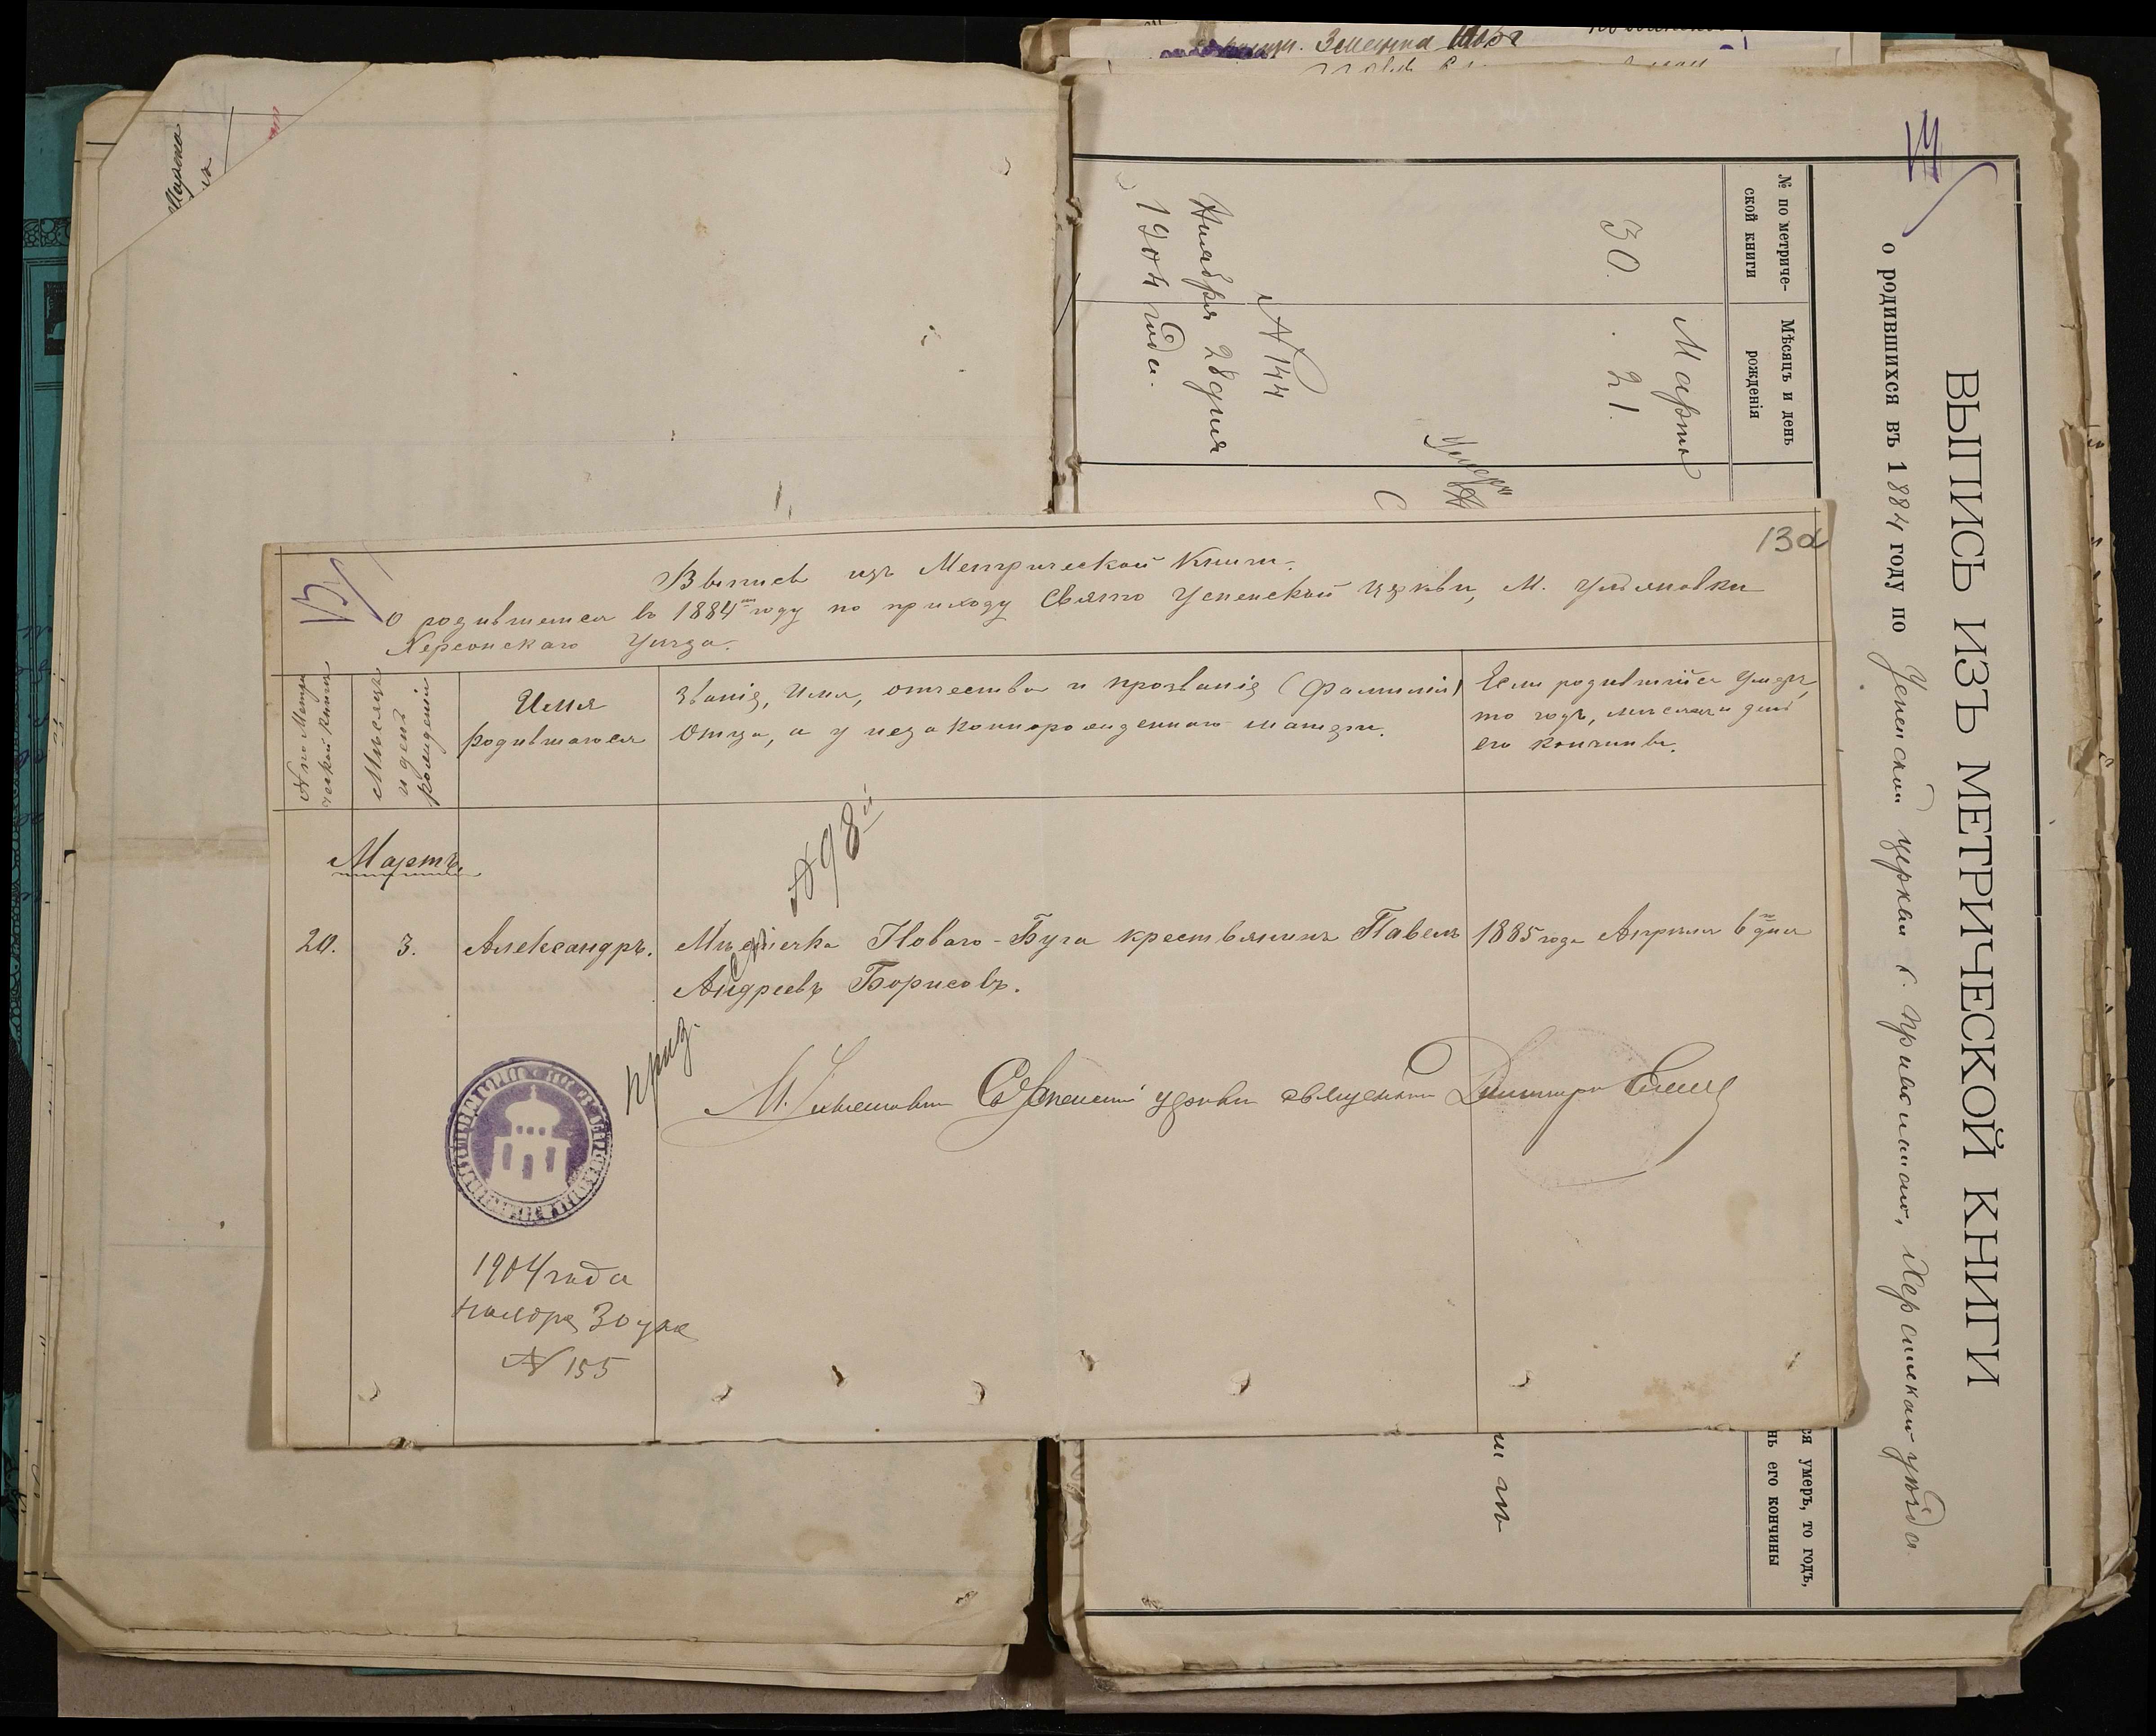 13а
Выпись изъ Метрической Книги.
О родившемся въ 1884 году по приходу Свято Успенской церкви, М.
Херсонскаго уѣзда.
№ по Метри
ческой Книги
Мѣсяцъ
и день
рожденія
Имя
родившагося
Званіе, Имя, отчество и прозваніе (фамилія)
Отца, а у незаконнорожденнаго матери.
Если родившійся умеръ,
то годъ, мѣсяцъ и день
его кончины.
№ 98
Мартъ.
20.
3.
Александръ.
Мѣстечка Новаго-Буга крестьянинъ Павелъ
Андреевъ Борисовъ.
1885 года Апрѣля 6 дня
церкви священникъ Димитрій
1904 года
ноября 30 дня
№ 155
ВЫПИСЬ ИЗЪ МЕТРИЧЕСКОЙ КНИГИ
о родившихся въ 1884 году по Успенской церкви с. Херсонскаго уѣзда.
№ по метриче-
ской книги
Мѣсяцъ и день
рожденія
30.
Мартъ
21.
умеръ
№ 144
Ноября 28 дня
1904 года.
ся умеръ, то годъ,
нь его кончины